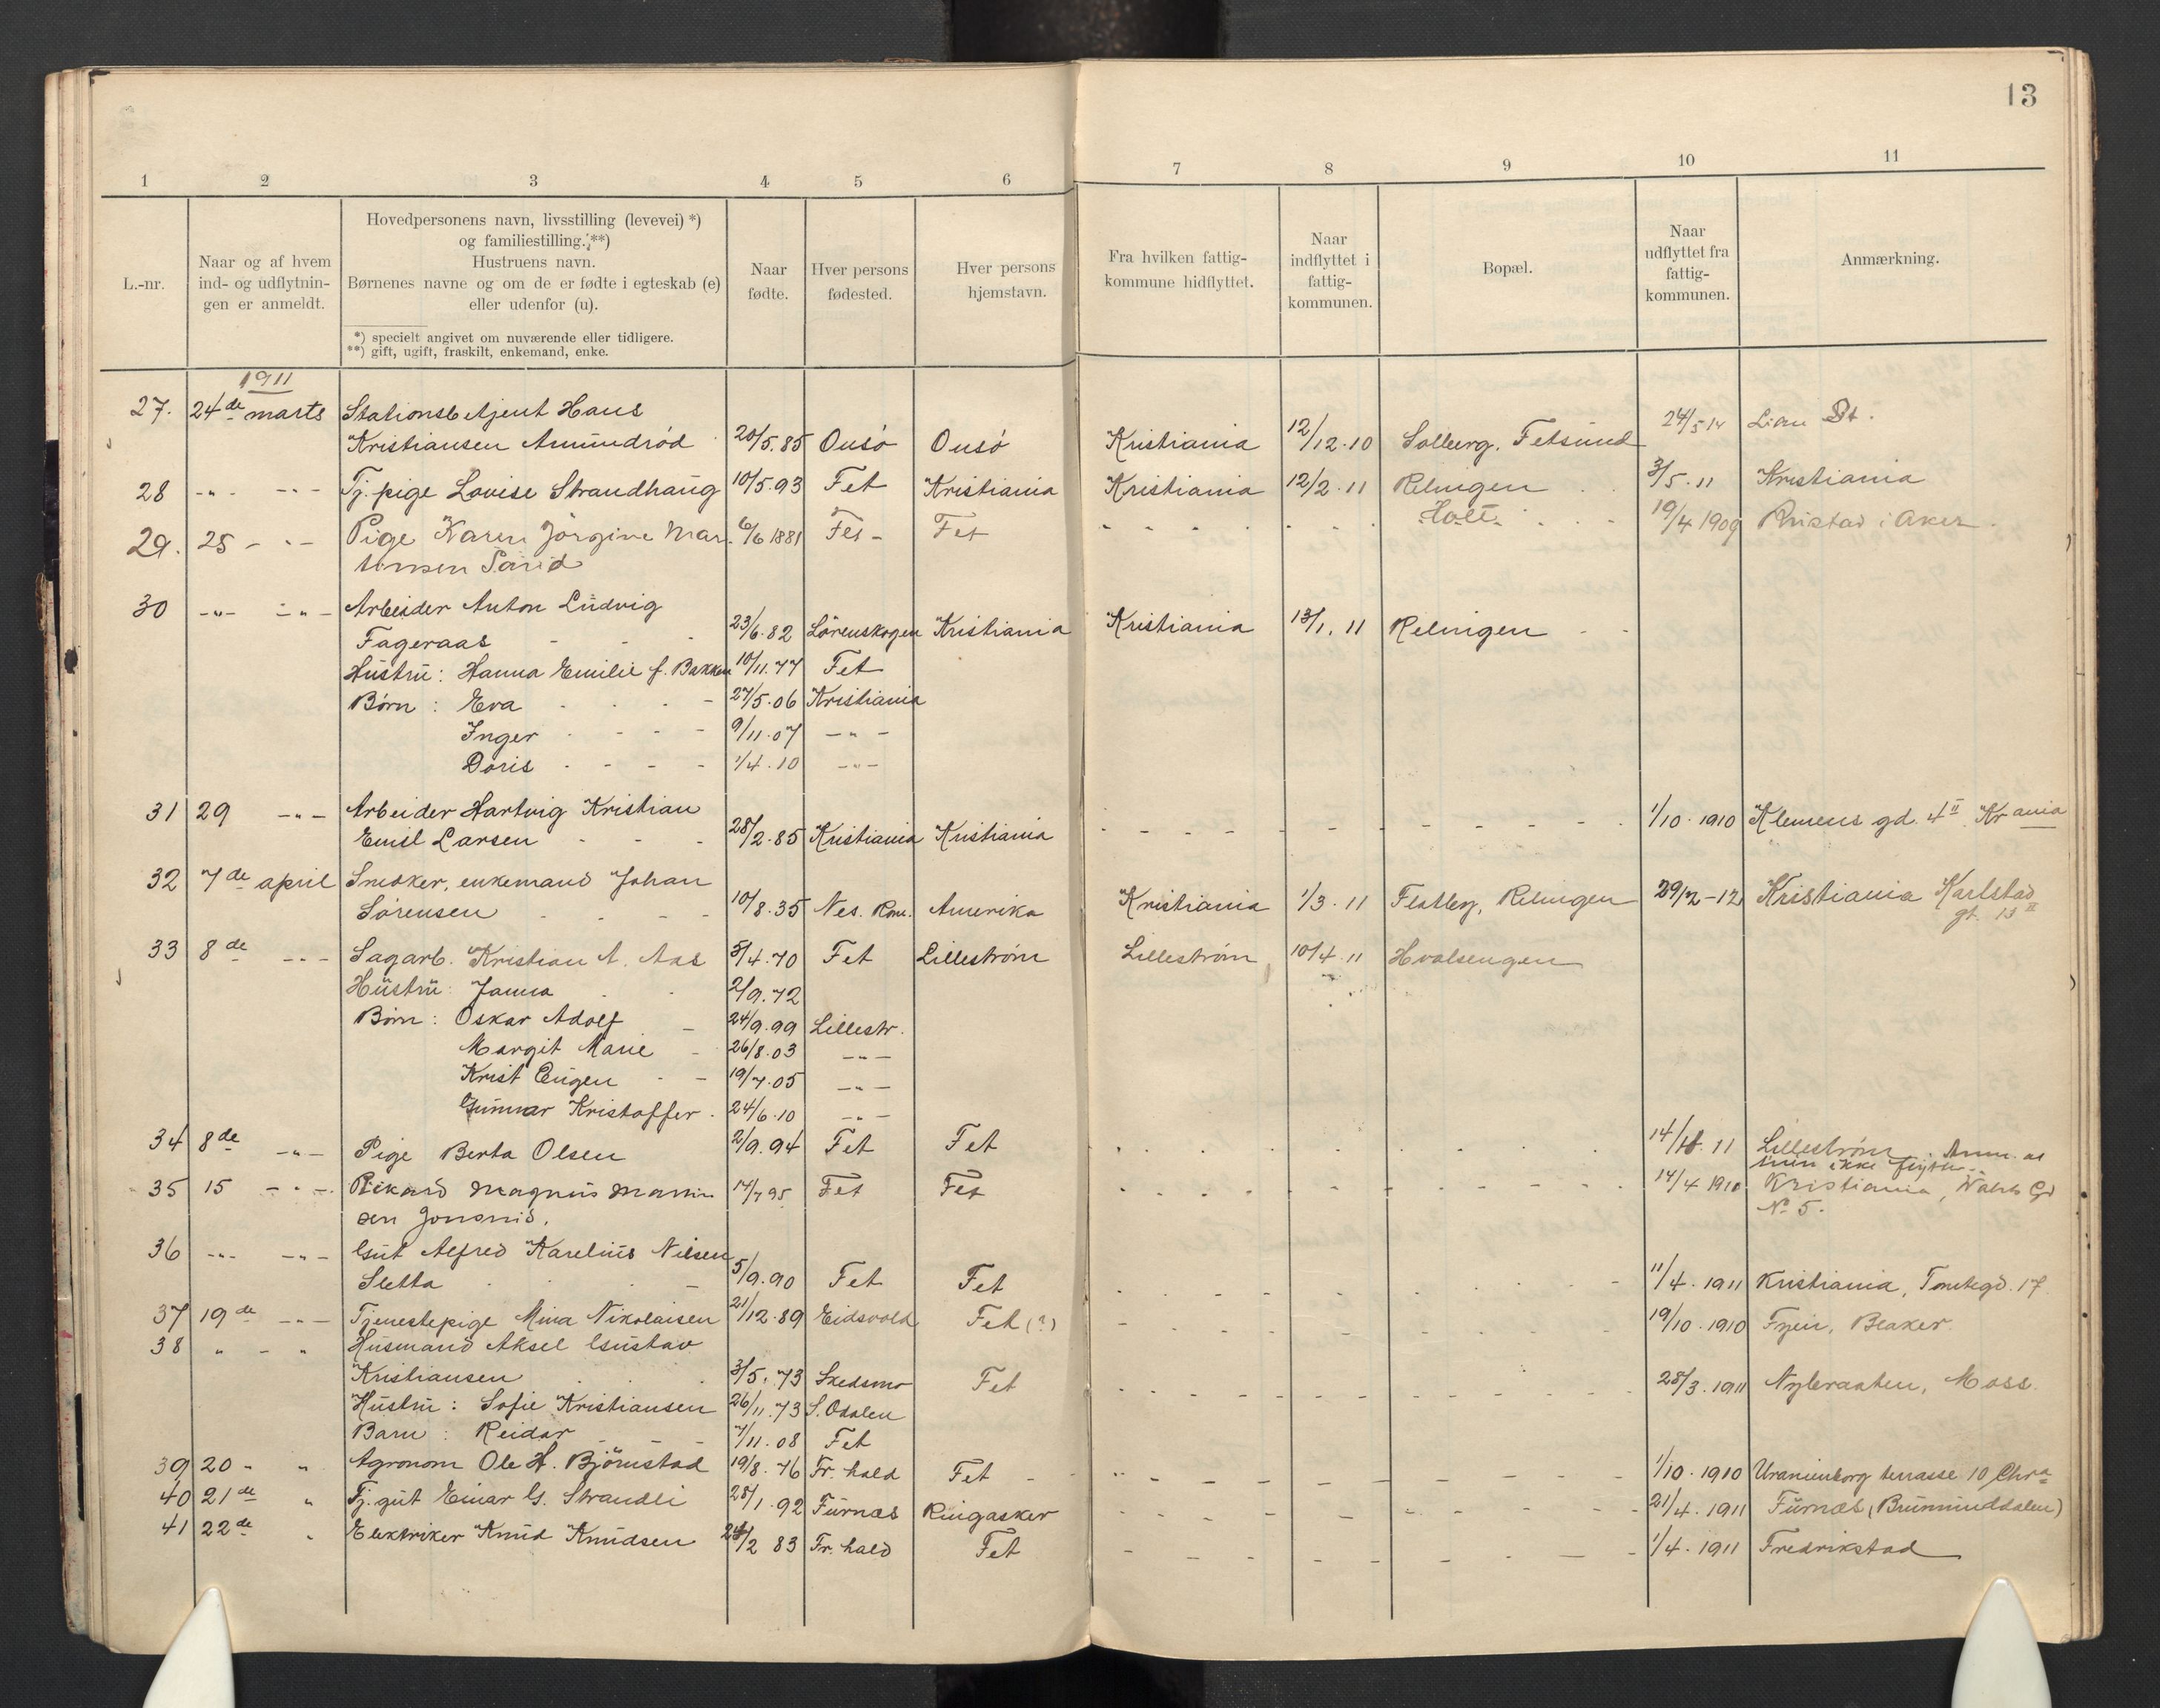 13
1 2 3 4 5 6 7 8 9 10 11
L.-nr.
Naar og af hvem
ind- og udflytnin-
gen er anmeldt.
Hovedpersonens navn, livsstilling (levevei) *)
og familiestilling. **)
Hustruens navn.
Børnenes navne og om de er fødte i egteskab (e)
eller udenfor (u).
*) specielt angivet om nuværende eller tidligere.
**) gift, ugift, fraskilt, enkemand, enke.
Naar
fødte.
Hver persons
fødested.
Hver persons
hjemstavn.
Fra hvilken fattig-
kommune hidflyttet.
Naar
indflyttet i
fattig-
kommunen.
Bopæl.
Naar
udflyttet fra
fattig-
kommunen.
Anmærkning.
1911
27. 24de marts Stationsbetjent Hans
Kristiansen Amundrød 20/5.85 Onsö Onsö Kristiania 12/12.10 Solberg, Fetsund 24/5 14 Lian St.
28 -"- -"- Tj. pige Lovise Strandhaug 10/5.93 Fet Kristiania Kristiania 12/2.11 Relingen 3/5.11 Kristiania
29. 25 -"- Pige Karen Jörgine Mar- 6/6 1881 Fet - Fet Holt 19/4 1909 i Aker
tinsen
30 -"- -"- Arbeider Anton Ludvig
Fageraas 23/6.82 Lörenskogen Kristiania Kristiania 13/1.11 Relingen
Hustru: Hanna Emilie f. Bakken 10/11.77 Fet
Børn: Eva 27/5.06 Kristiania
Inger 9/11.07 -"-
Doris 1/4.10 -"-
31 29 -"- Arbeider Hartvig Kristian
Emil Larsen 28/2.85 Kristiania Kristiania 1/10.1910 Klemens gd. 4 II Krania
32 7de april Snedker, enkemand Johan
Sörensen 10/8.35 Nes. Rom. Amerika Kristiania 1/3.11 Flatby, Relingen 29/2-12 Kristiania Karlstad
gt. 13 II
33 8de -"- Sagarb. Kristian A. Aas 3/4.70 Fet Lilleström Lilleström 10/4.11 Hvalsengen
Hustru: Janna 2/9.72
Børn: Oskar Adolf 24/9.99 Lillestr.
Margit Marie 26/8.03 -"-
Krist Eugen 19/7.05 -"-
Gunnar Kristoffer 24/6.10 -"-
34 8de -"- Pige Berta Olsen 2/9.94 Fet Fet Lilleström. Anm. at
ikke
35 15 -"- Rikard Magnus 14/7 95 Fet Fet 14/4 1910 Kristiania, Gd
No 5.
36 -"- -"- Gut Alfred Karelius Nilsen
Sletta 5/9.90 Fet Fet 11/4.1911 Kristiania, Tomtegd. 17.
37 19de -"- Tjenestepige Mina Nikolaisen 21/12.89 Eidsvold Fet (?) 19/10.1910 Fjeir, Blaker.
38 " - " Husmand Aksel Gustav
Kristiansen 3/5.73 Skedsmo Fet 28/3.1911 Nybraaten, Moss.
Hustru: Sofie Kristiansen 26/11.73 S. Odalen
Barn: Reidar 7/11.08 Fet
39 20 - " Agronom Ole H. Björnstad 19/8.76 Fr. hald Fet 1/10.1910 Uranienborg terrasse 10, Chra
40 21de " Tj. gut Einar G. Strandli 28/1.92 Furnæs Ringsaker 21/4.1911 Furnæs, (Brumunddalen)
41 22de " Elektriker Knud Knudsen 24/2 83 Fr. hald Fet 1/4.1911 Fredrikstad